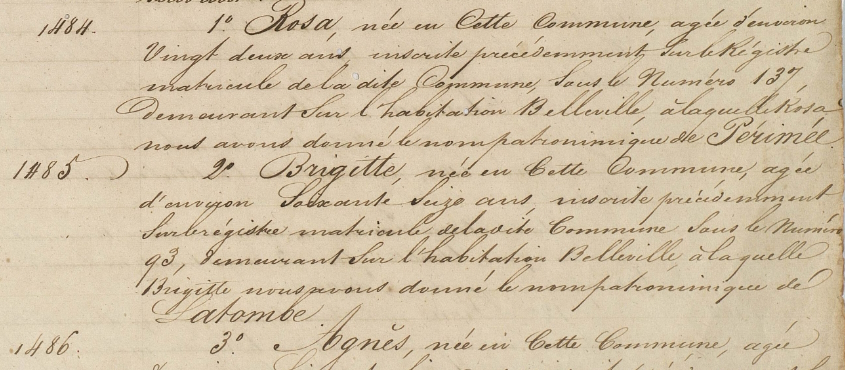 1484. 1º Rosa, née en Cette Commune, agée d'environ
Vingt deux ans, inscrite précédemment sur le Régistre
matricule de la dite Commune, sous le Numéro 137,
demeurant sur l'habitation Belleville, à laquelle Rosa
nous avons donné le nom patronimique de Périmée.
1485. 2º Brigitte, née en Cette Commune, agée
d'environ Soixante Seize ans, inscrite précédemment
sur le régistre matricule de la dite Commune sous le Numéro
93, demeurant sur l'habitation Belleville à la quelle
Brigitte nous avons donné le nom patronimique de
Latombe
1486. 3º Agnès, née en Cette Commune, agée